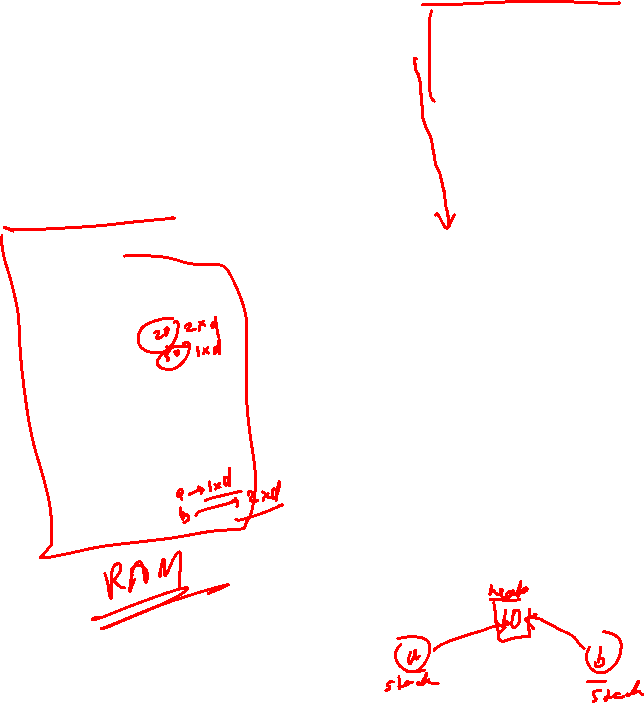 20 2xd
10 1xd
a → 1xd
b → 2xd
RAM
heap
10
a
b
stack
stack